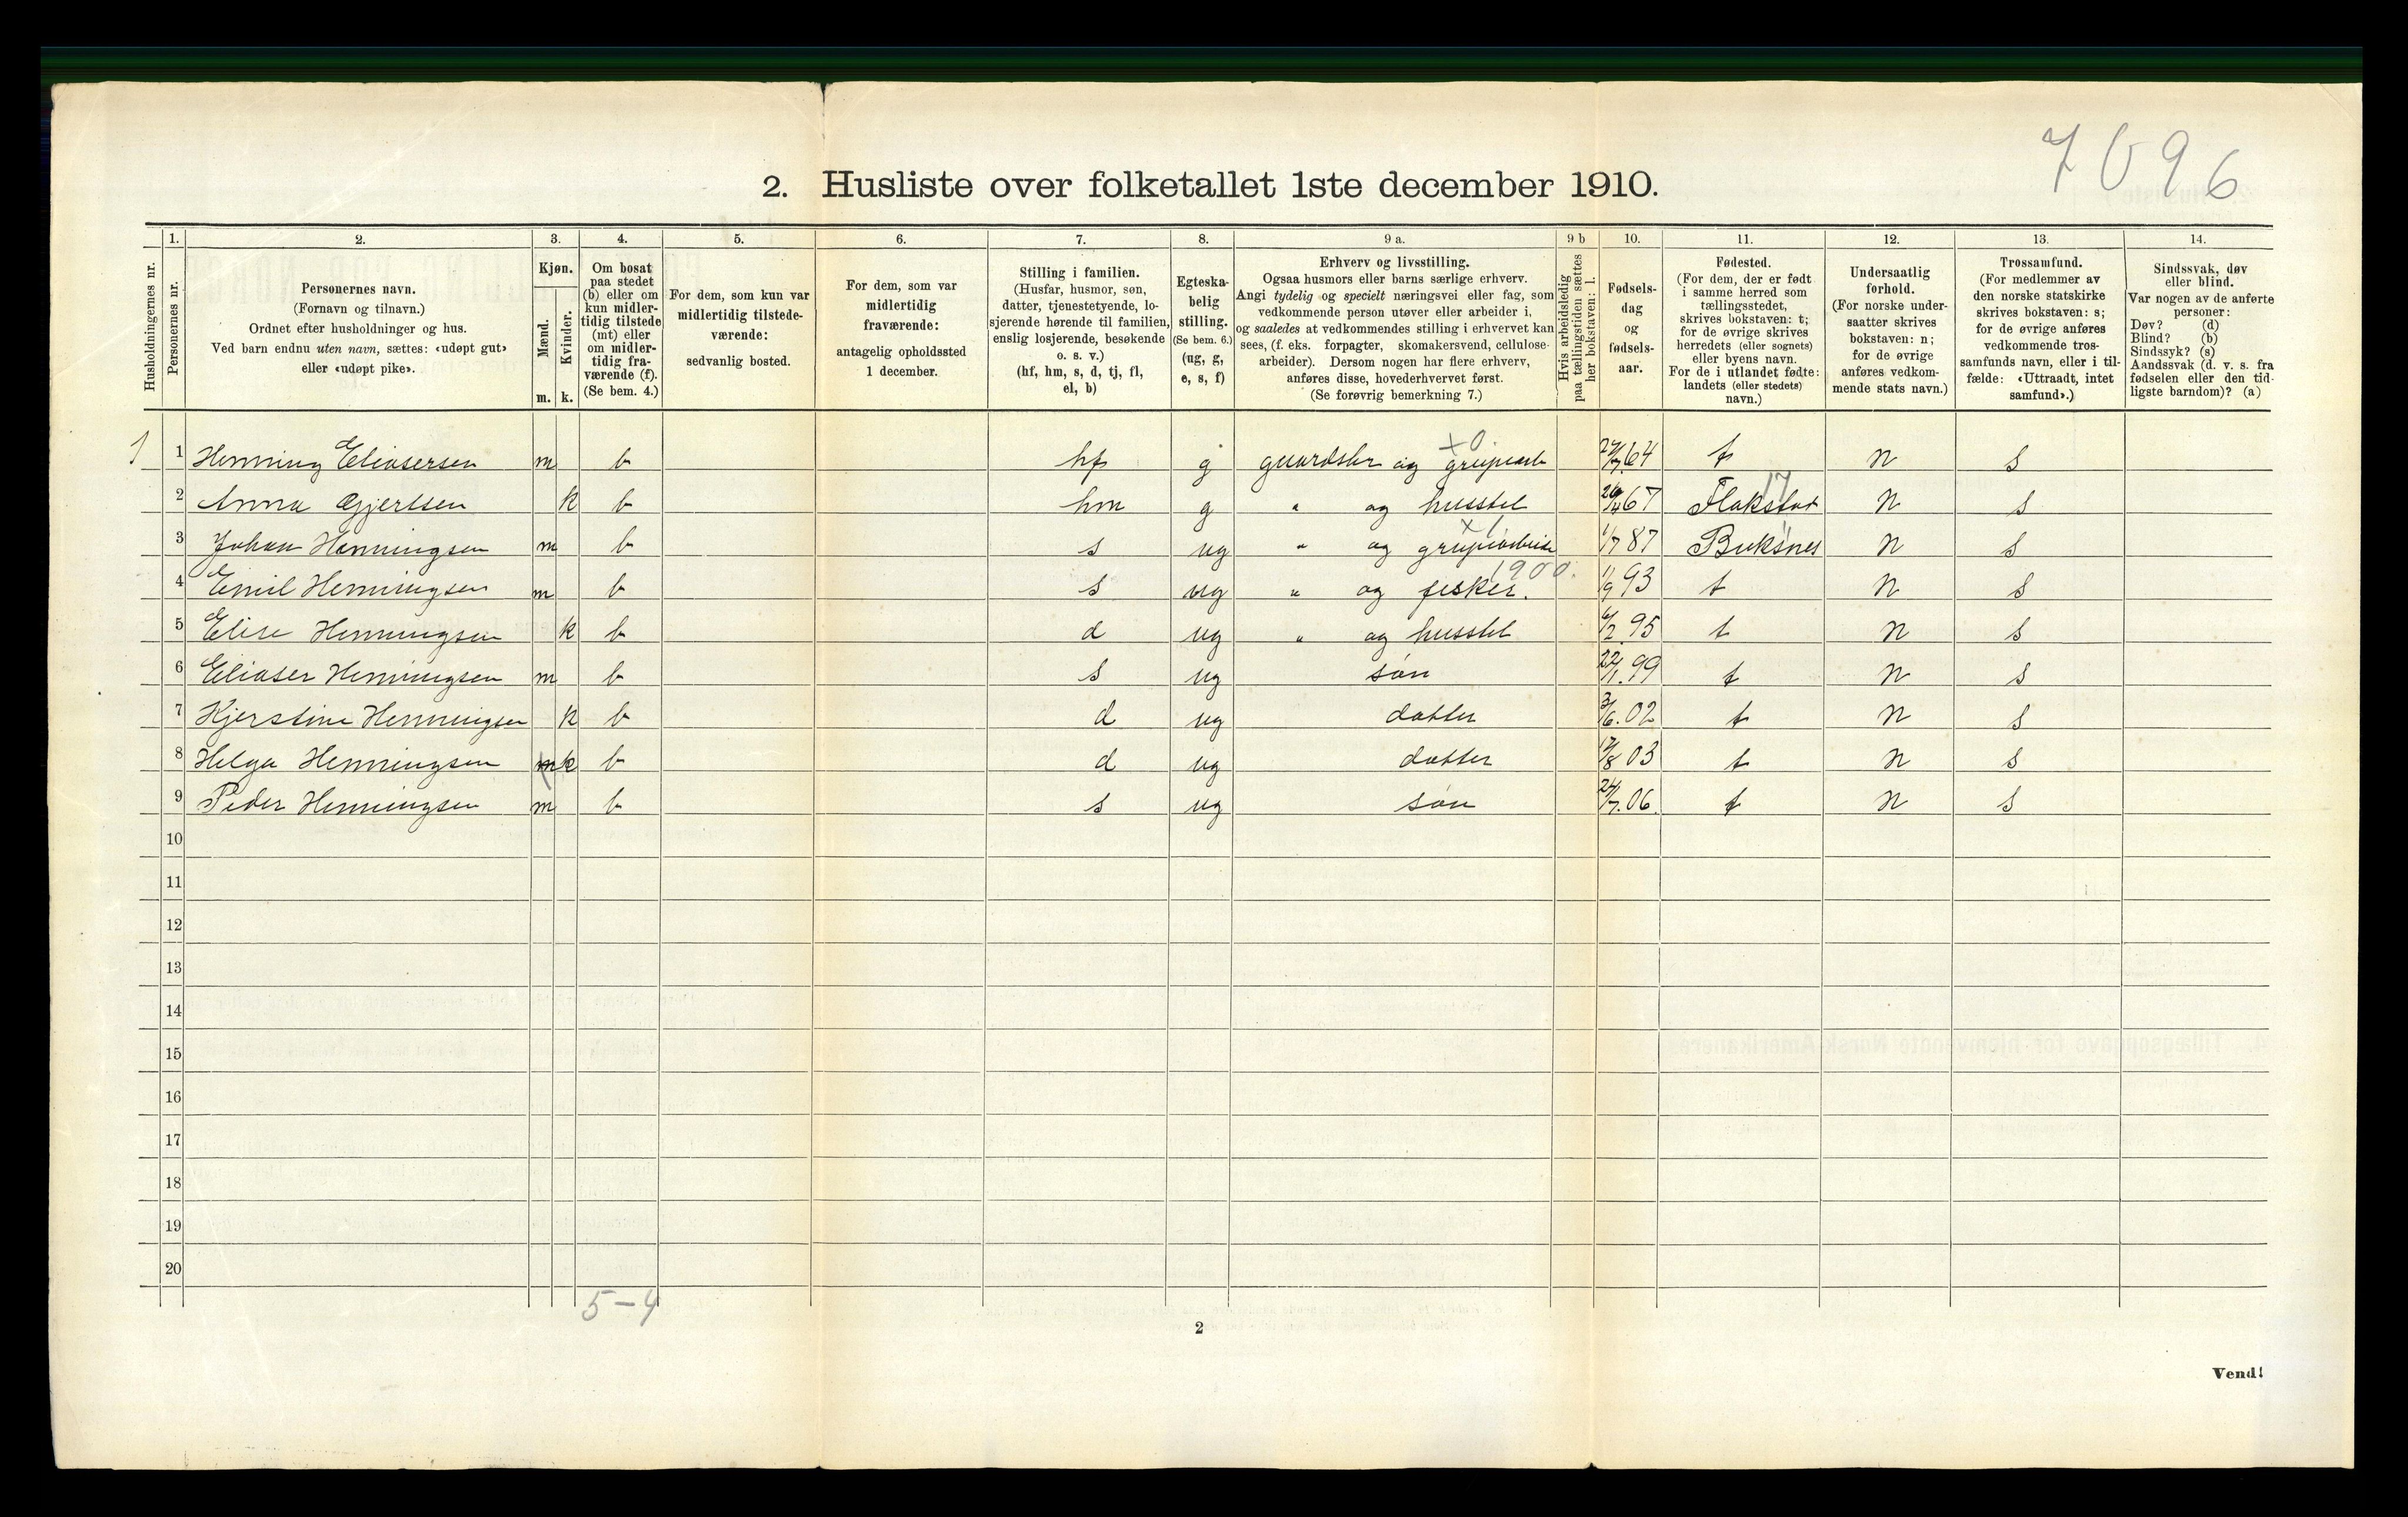 7096
2. Husliste over folketallet 1ste december 1910.
Husholdningernes nr.
1. Personernes nr.
2. Personernes navn.
(Fornavn og tilnavn.)
Ordnet efter husholdninger og hus.
Ved barn endnu uten navn, sættes: «udøpt gut»
eller «udøpt pike».
3. Kjøn.
Mænd. m.
Kvinder. k.
4. Om bosat
paa stedet
(b) eller om
kun midler-
tidig tilstede
(mt) eller
om midler-
tidig fra-
værende (f).
(Se bem. 4.)
5. For dem, som kun var
midlertidig tilstede-
værende:
sedvanlig bosted.
6. For dem, som var
midlertidig
fraværende:
antagelig opholdssted
1 december.
7. Stilling i familien.
(Husfar, husmor, søn,
datter, tjenestetyende, lo-
sjerende hørende til familien,
enslig losjerende, besøkende
o. s. v.)
(hf, hm, s, d, tj, fl,
el, b)
8. Egteska-
belig
stilling.
(Se bem. 6.)
(ug, g,
e, s, f)
9 a. Erhverv og livsstilling.
Ogsaa husmors eller barns særlige erhverv.
Angi tydelig og specielt næringsvei eller fag, som
vedkommende person utøver eller arbeider i,
og saaledes at vedkommendes stilling i erhvervet kan
sees, (f. eks. forpagter, skomakersvend, cellulose-
arbeider). Dersom nogen har flere erhverv,
anføres disse, hovederhvervet først.
(Se forøvrig bemerkning 7.)
9 b Hvis arbeidsledig
paa tællingstiden sættes
her bokstaven: l.
10. Fødsels-
dag
og
fødsels-
aar.
11. Fødested.
(For dem, der er født
i samme herred som
tællingsstedet,
skrives bokstaven: t;
for de øvrige skrives
herredets (eller sognets)
eller byens navn.
For de i utlandet fødte:
landets (eller stedets)
navn.)
12. Undersaatlig
forhold.
(For norske under-
saatter skrives
bokstaven: n;
for de øvrige
anføres vedkom-
mende stats navn.)
13. Trossamfund.
(For medlemmer av
den norske statskirke
skrives bokstaven: s;
for de øvrige anføres
vedkommende tros-
samfunds navn, eller i til-
fælde: «Uttraadt, intet
samfund».)
14. Sindssvak, døv
eller blind.
Var nogen av de anførte
personer:
Døv? (d)
Blind? (b)
Sindssyk? (s)
Aandssvak (d. v. s. fra
fødselen eller den tid-
ligste barndom)? (a)
x 0.
1 1 Henning Eliasersen m b hf g og 64 t n s
17
2 Anna Gjertsen k b hm g " og husstel 67 Flakstad n s
x 1 "
3 Johan Henningsen m b s ug " og 1/7 87 Buksnes n s
1900.
4 Emil Henningsen m b s ug " og fisker. 11/9 93 t n s
5 Elise Henningsen k b d ug " og husstel 6/2 95 t n s
6 Eliaser Henningsen m b s ug søn 22/1. 99 t n s
7 Kjerstine Henningsen k b d ug datter 3/6. 02 t n s
8 Helga Henningsen m k b d ug datter 03 t n s
9 Peder Henningsen m b s ug søn 24/7. 06. t n s
10
11
12
13
14
15
16
17
18
19
20
5-4
2
Vend!